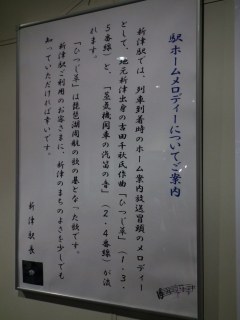 駅ホームメロディーについてご案内
新津駅では、列車到着時のホーム案内放送冒頭のメロディー
として、地元新津出身の吉田千秋氏作曲「ひつじ草」（1・3・
5番線）と、「蒸気機関車の汽笛の音」（2・4番線）が流
れます。
「ひつじ草」は琵琶湖周航の歌の基となった歌です。
新津駅ご利用のお客さまに、新津のまちのよさを少しでも
知っていただければ幸いです。
新津駅長